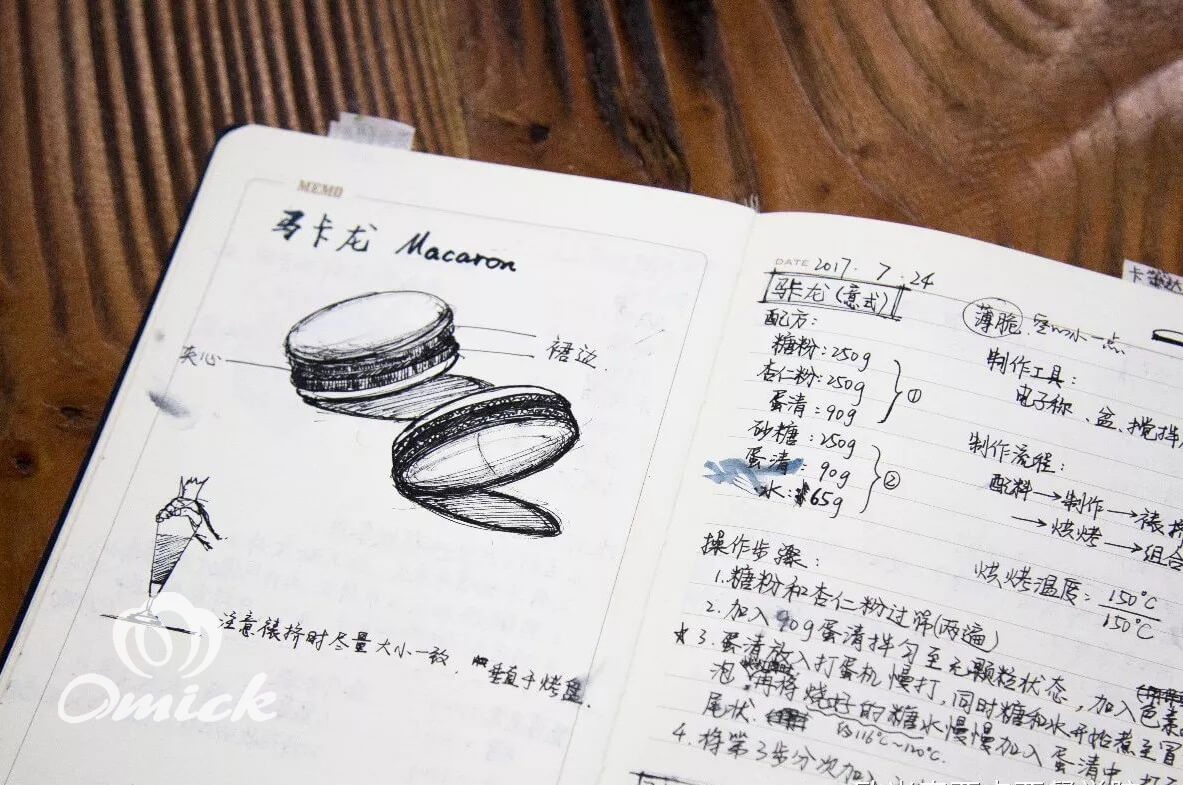 MEMO
马卡龙 Macaron
夹心
裙边
注意裱挤时尽量大小一致,
垂直于烤盘.
Omick
卡
DATE 2017.7.24
马卡龙(意式)
薄脆
一点
配方:
糖粉:250g
杏仁粉:250g
蛋清:90g
①
砂糖:250g
蛋清:90g
水:65g
②
制作工具:
电子称、盆、搅拌
制作流程:
配料→制作→裱挤
→烘烤→组合
烘烤温度:150°C
150°C
操作步骤:
1.糖粉和杏仁粉过筛(两遍)
2.加入90g蛋清拌匀至无颗粒状态,加入色素
★3.蛋清放入打蛋机慢打,同时糖和水开始煮至冒
泡 再将烧好的糖水慢慢加入蛋清中
尾状.
约116°C~120°C.
4.将第3步分次加入